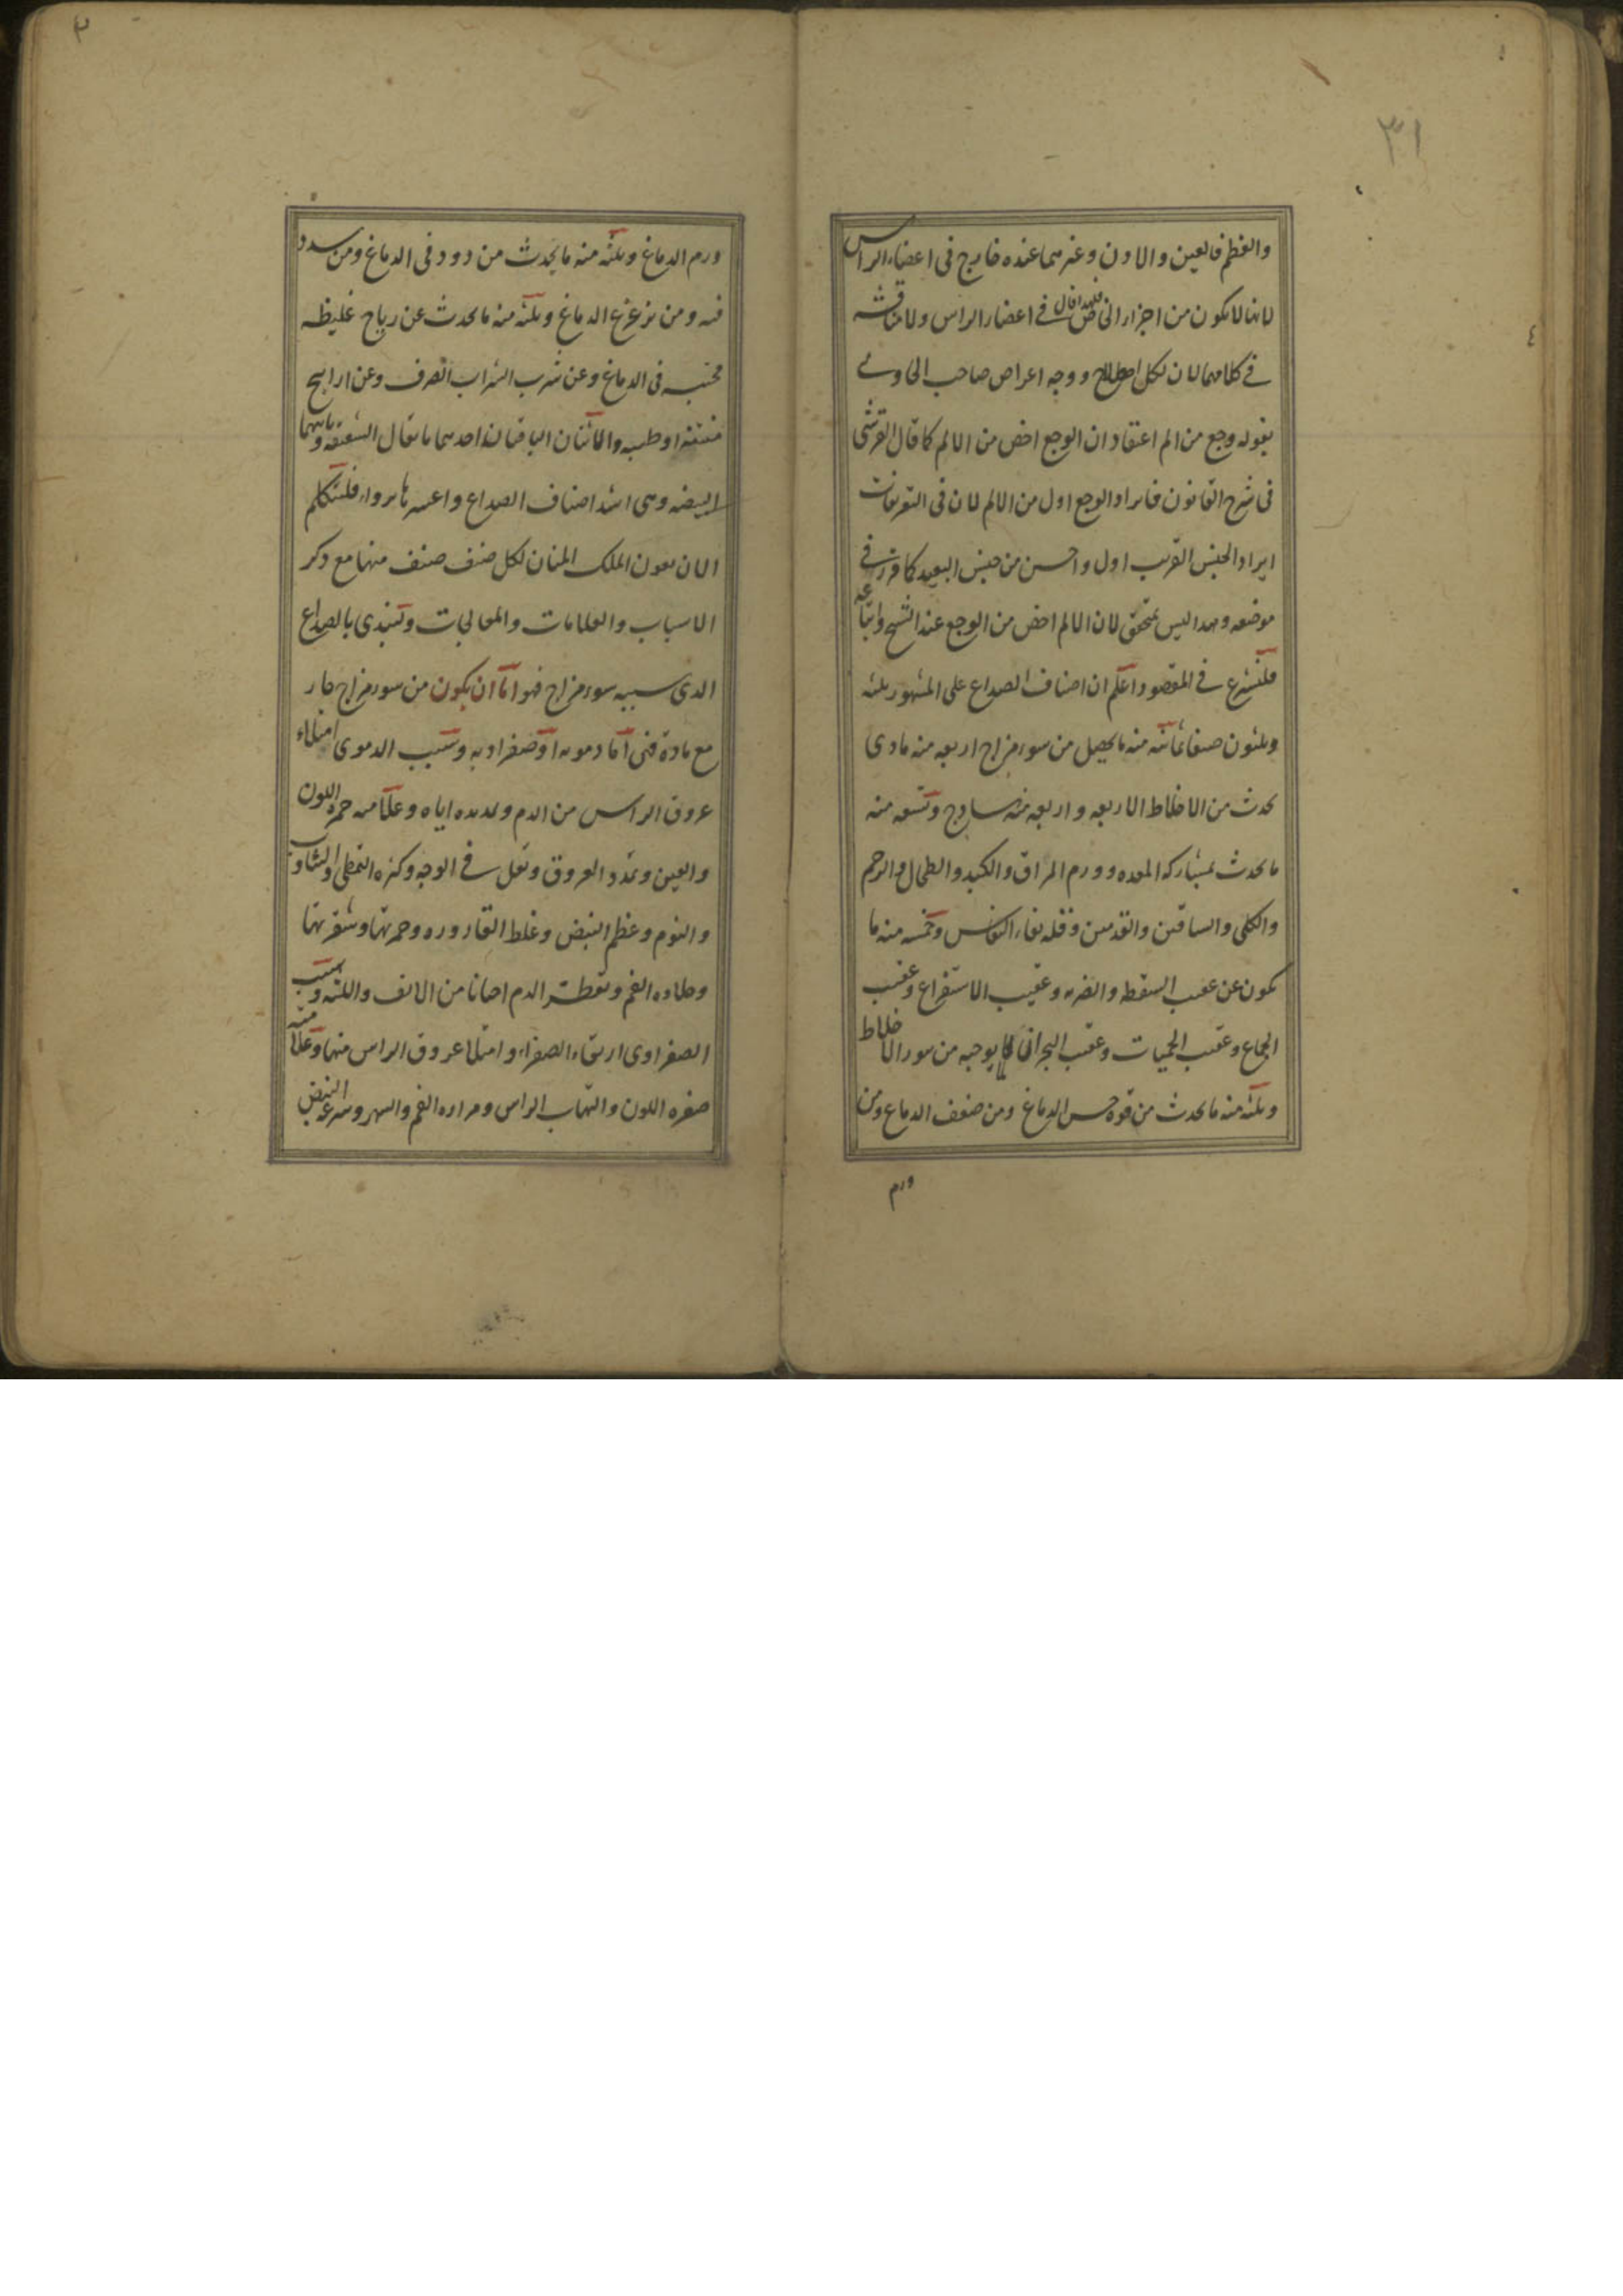 ٣١
والعظم فالعين والاذن وغيرهما عنده خارج فى اعضاء الراس
لانها لا يكون من اجزاء فلهذا قال فى اعضاء الراس ولا مناقشة
فى كلامهما لان لكل اصطلاح ووجه اعراض صاحب الحاوى
بقوله وجع من الم اعتقاد ان الوجع اخص من الالم كما قال القرشى
فى شرح القانون فايراد الوجع اولى من الالم لان فى التعريفات
ايراد الجنس القريب اولى واحسن من جنس البعيد كما قرر فى
موضعه وهذا ليس بمحقق لان الالم اخص من الوجع عند الشيخ واتباعه
فلنشرع فى المقصود اعلم ان اصناف الصداع على المشهور ثلثه
وثلثون صنفا ثمانيه منه ما يحصل من سوء مزاج اربعه منه مادى
يحدث من الاخلاط الاربعه واربعه منه ساذج وتسعه منه
ما يحدث بمشاركه المعده وورم المراق والكبد والطحال والرحم
والكلى والساقين والقدمين وقله نقاء النفاس وخمسه منه ما
يكون عن عقب السقطه والضربه وعقيب الاستفراغ وعقيب
الجماع وعقيب الحميات وعقيب البحران لما يوجبه من ثور الاخلاط
وثلثه منه ما يحدث من قوه حس الدماغ ومن ضعف الدماغ ومن
ورم
ورم الدماغ وثلثه منه ما يحدث من دود فى الدماغ ومن سدد
فيه ومن تزعزع الدماغ وثلثه منه ما يحدث عن رياح غليظه
محتبسه فى الدماغ وعن شرب الشراب الصرف وعن اراييح
منتنه او طيبه والاثنان الباقيان احدهما ما يقال الشقيقه وثانيهما
البيضه وهى اشد اصناف الصداع واعسرها برواء فلنتكلم
الان بعون الملك المنان لكل صنف صنف منها مع ذكر
الاسباب والعلامات والمعالجات ونبتدى بالصداع
الذى سببه سوء مزاج فهو اما ان يكون من سوء مزاج حار
مع مادة فهى اما دمويه او صفراويه وسبب الدموى امتلاء
عروق الراس من الدم وتمديده اياه وعلامته حمره اللون
والعين وتمدد العروق وثقل فى الوجه وكثره التمطى والتثاوب
والنوم وعظم النبض وغلظ القاروره وحمرتها وشقرتها
وحلاوه الفم وتقطر الدم احيانا من الانف واللثه وسبب
الصفراوى ارتقاء الصفراء وامتلا عروق الراس منها وعلامته
صفره اللون والتهاب الراس ومراره الفم والسهر وسرعه النبض